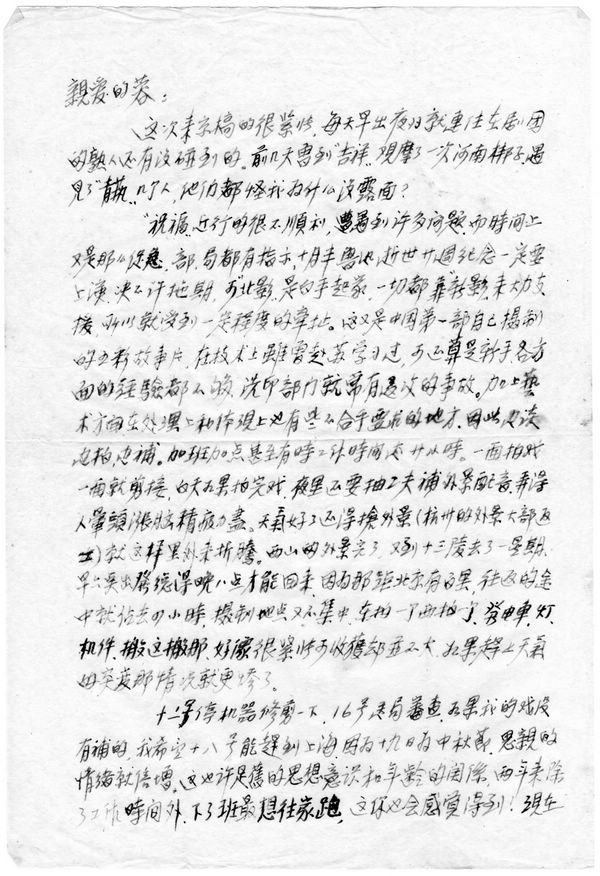 親爱的蓉：
这次来京搞的很紧张，每天早出夜归就連住在劇团
的熟人还有没碰到的。前几天曾到"吉祥"观摩了一次河南梆子遇
見了 几个人，他们都怪我为什么没露面？
"祝福"进行的很不順利，遭遇到许多问题，而时间上
又是那么促急，部、局都有指示，十月半鲁迅逝世廿週紀念一定要
上演，决不许拖期，可"北影"是白手起家，一切都靠"新影"来大力支
援，所以就受到一定程度的牽扯。这又是中国第一部自己攝制
的五彩故事片，在技术上雖曾赴苏学习过，可还算是新手各方
面的经验都不够，洗印部门就常有这次的事故。加上藝
术方面在处理上和体现上也有些不合乎要求的地方，因此边谈
边拍，边補。加班加点甚至有時工作時间近廿小時。一面拍戏
一面就剪接，白天如果拍完戏，夜里还要抽工夫補外景配音，弄得
人暈頭漲脑精疲力盡。天氣好了还得搶外景（杭州的外景大部返
工）就这样里外来折騰。西山的外景完了，又到十三陵去了一星期，
早上 出發總得晚八点才能回来，因为那距北京有百里，往返的途
中就佔去四小時，攝制地点又不集中，东拍一个西拍一个，發电車、灯、
机件，搬这搬那，好像很紧张可收獲却並不大，如果趕上天氣
的突变那情况就更慘了。
十二号停机器修剪一下，16号送局審查，如果我的戏没
有補的，我希望十八号能趕到上海，因为十九日为中秋節，思親的
情绪就倍增。这也许是舊的思想意识和年齡的関係，两年来除
了工作時间外，下了班最想往家跑，这你也会感覚得到！現在